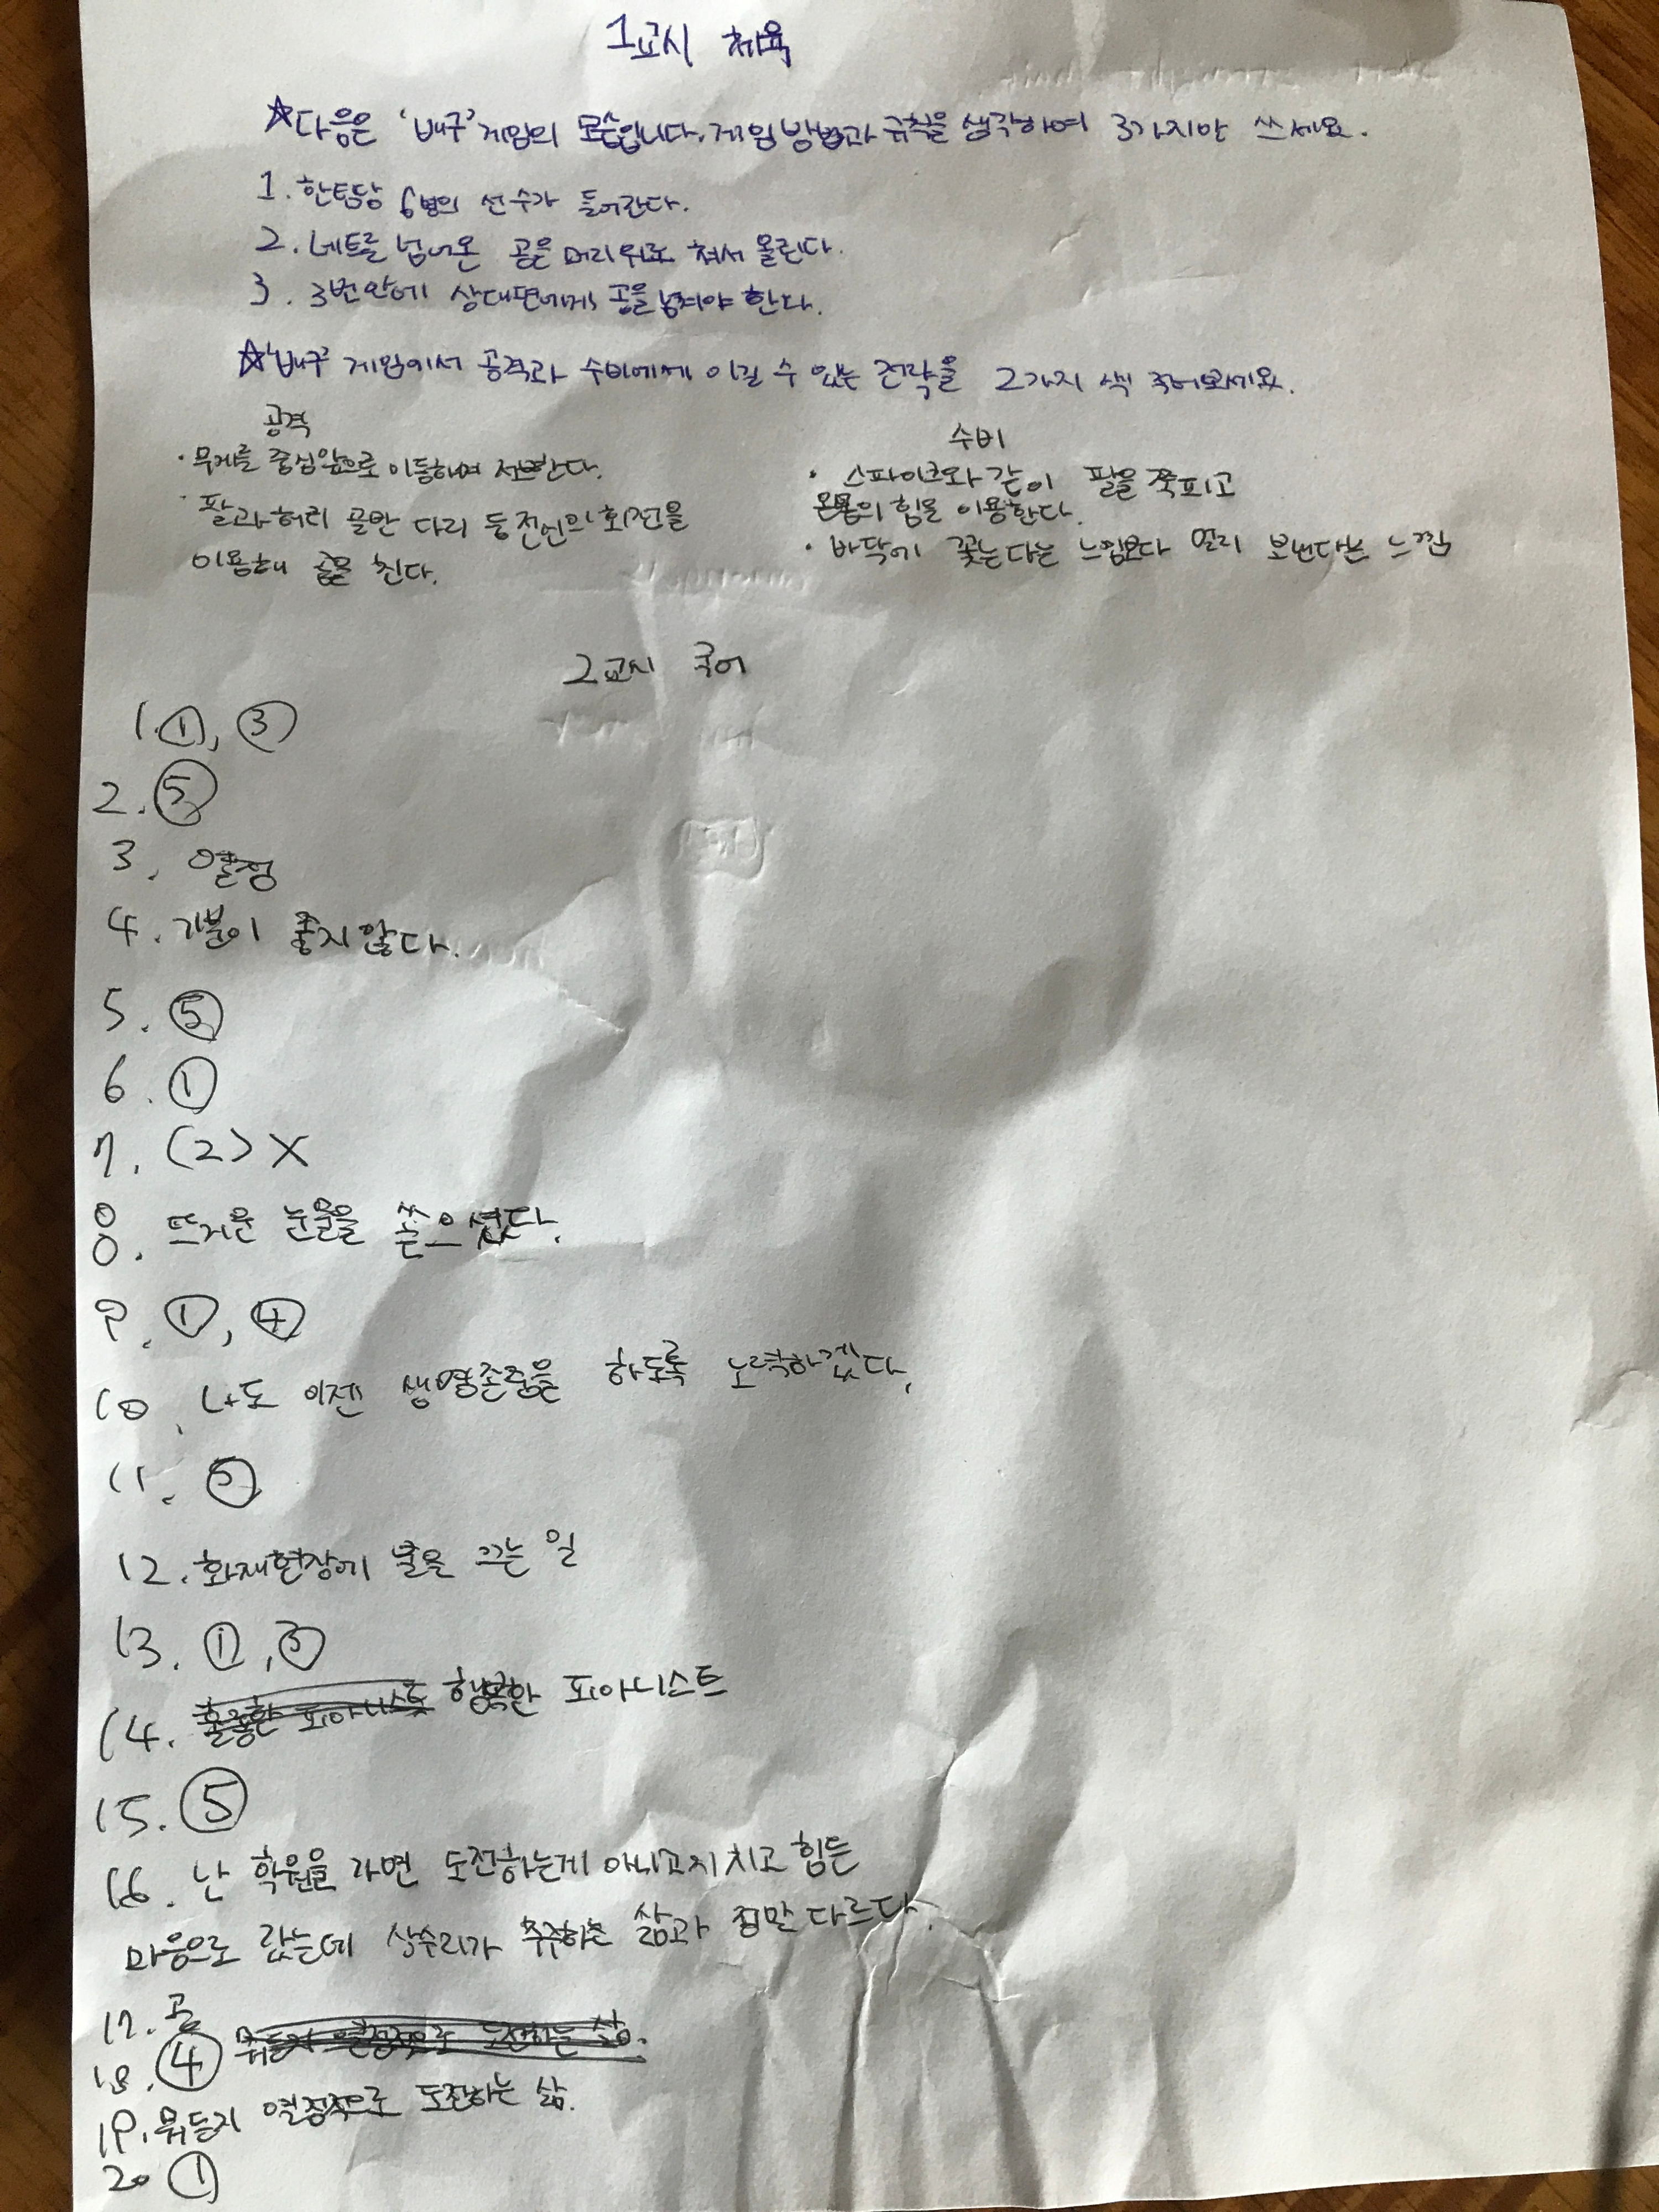 1교시 체육
☆다음은 '배구' 게임의 모습입니다. 게임 방법과 규칙을 생각하여 3가지만 쓰세요.
1. 한팀당 6명의 선수가 들어간다.
2. 네트를 넘어온 공을 머리위로 쳐서 올린다.
3. 3번안에 상대편에게 공을 넘겨야 한다.
☆'배구' 게임에서 공격과 수비에게 이길 수 있는 전략을 2가지 색 적어보세요.
공격
· 무게를 중심앞으로 이동하며 서브한다.
· 팔과 허리 골반 다리 등 전신의 회전을
이용해 공을 친다.
수비
· 스파이크와 같이 팔을 쭉피고
온몸의 힘을 이용한다.
· 바닥에 꽃는다는 느낌보다 멀리 보낸다는 느낌
2교시 국어
1. ①, ③
2. ⑤
3. 열정
4. 기분이 좋지 않다.
5. ⑤
6. ①
7. (2) X
8. 뜨거운 눈물을 쏟으셨다.
9. ①, ④
10. 나도 이젠 생명존중을 하도록 노력하겠다.
11.
12. 화재현장에 불을 끄는 일
13. ①, ③
14. 행복한 피아니스트
15. ⑤
16. 난 학원을 가면 도전하는게 아니고 지치고 힘든
마음으로 갔는데 상수리가 추구하는 삶과 정말 다르다.
17. 공
18. ④
19. 뭐든지 열정적으로 도전하는 삶.
20 ①